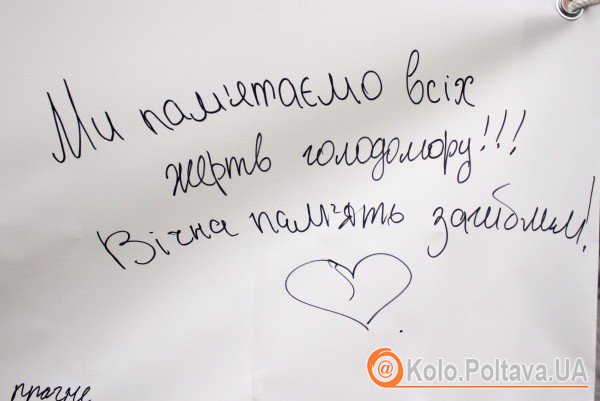 Ми пам'ятаємо всіх
жертв голодомору!!!
Вічна пам'ять загиблим!
прагне
@Kolo.Poltava.UA